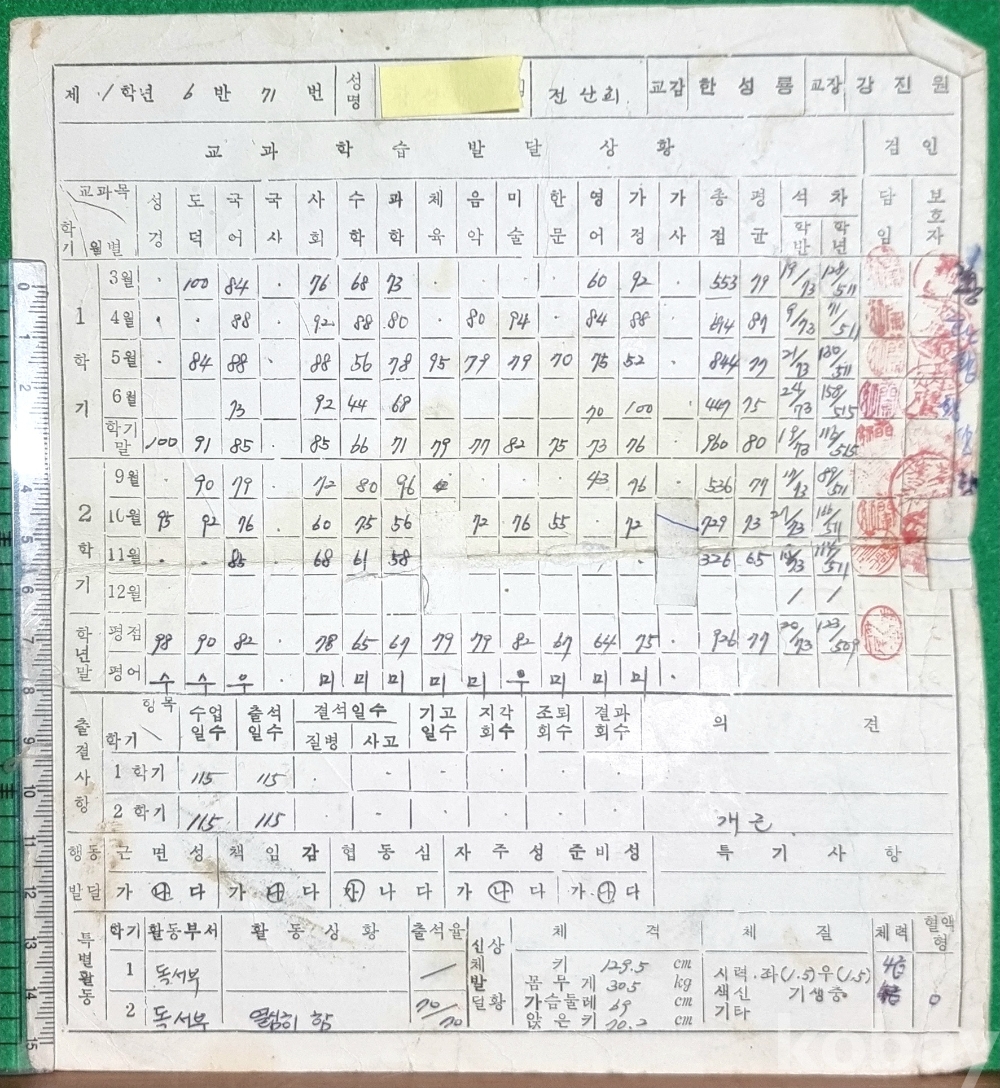 제 1 학년 6 반 71 번 성명 전산회 교감 한성룡 교장 강진원
교과학습발달상황 검인
교과목 학기 월별 성경 도덕 국어 국사 사회 수학 과학 체육 음악 미술 한문 영어 가정 가사 총점 평균 석차 학반 학년 담임 보호자
1학기 3월 · 100 84 · 76 68 73 · · · · 60 92 · 553 79 19/73 128/511
4월 · · 88 · 92 88 80 · 80 94 · 84 88 · 694 87 9/73 71/511
5월 · 84 88 · 88 56 78 95 79 79 70 75 52 · 844 77 21/73 130/511
6월 73 92 44 68 70 100 · 447 75 24/73 158/515
학기말 100 91 85 · 85 66 71 79 77 82 75 73 76 · 960 80 /73 /515
2학기 9월 · 90 79 · 72 80 96 · · · 43 76 · 536 77 /73 89/511
10월 95 92 76 · 60 75 56 72 76 55 · 72 729 73 /73 /511
11월 · · 85 68 61 58 326 65 /73 /511
12월 / /
학년말 평점 98 90 82 · 78 65 67 79 79 82 67 64 75 · 926 77 20/73 123/509
평어 수 수 우 미 미 미 미 미 우 미 미 미 ·
출결사항 학기 항목 수업일수 출석일수 결석일수 질병 사고 기고일수 지각회수 조퇴회수 결과회수 의견
1 학기 115 115 · · · · · ·
2 학기 115 115 · · · · · · 개근
행동발달 근면성 책임감 협동심 자주성 준비성 특기사항
가 나 다 가 나 다 가 나 다 가 나 다 가 나 다
특별활동 학기 활동부서 활동상황 출석율 신체발달상황 체격 체질 체력 혈액형
1 독서부 / 키 129.5 cm 시력 · 좌(1.5)우(1.5) 4급
몸무게 30.5 kg 색신 기생충 0
2 독서부 열심히 함 70/70 가슴둘레 69 cm 기타
앉은키 70.2 cm
0 1 2 4 5 6 7 8 9 10 11 12 13 14 15
kobay